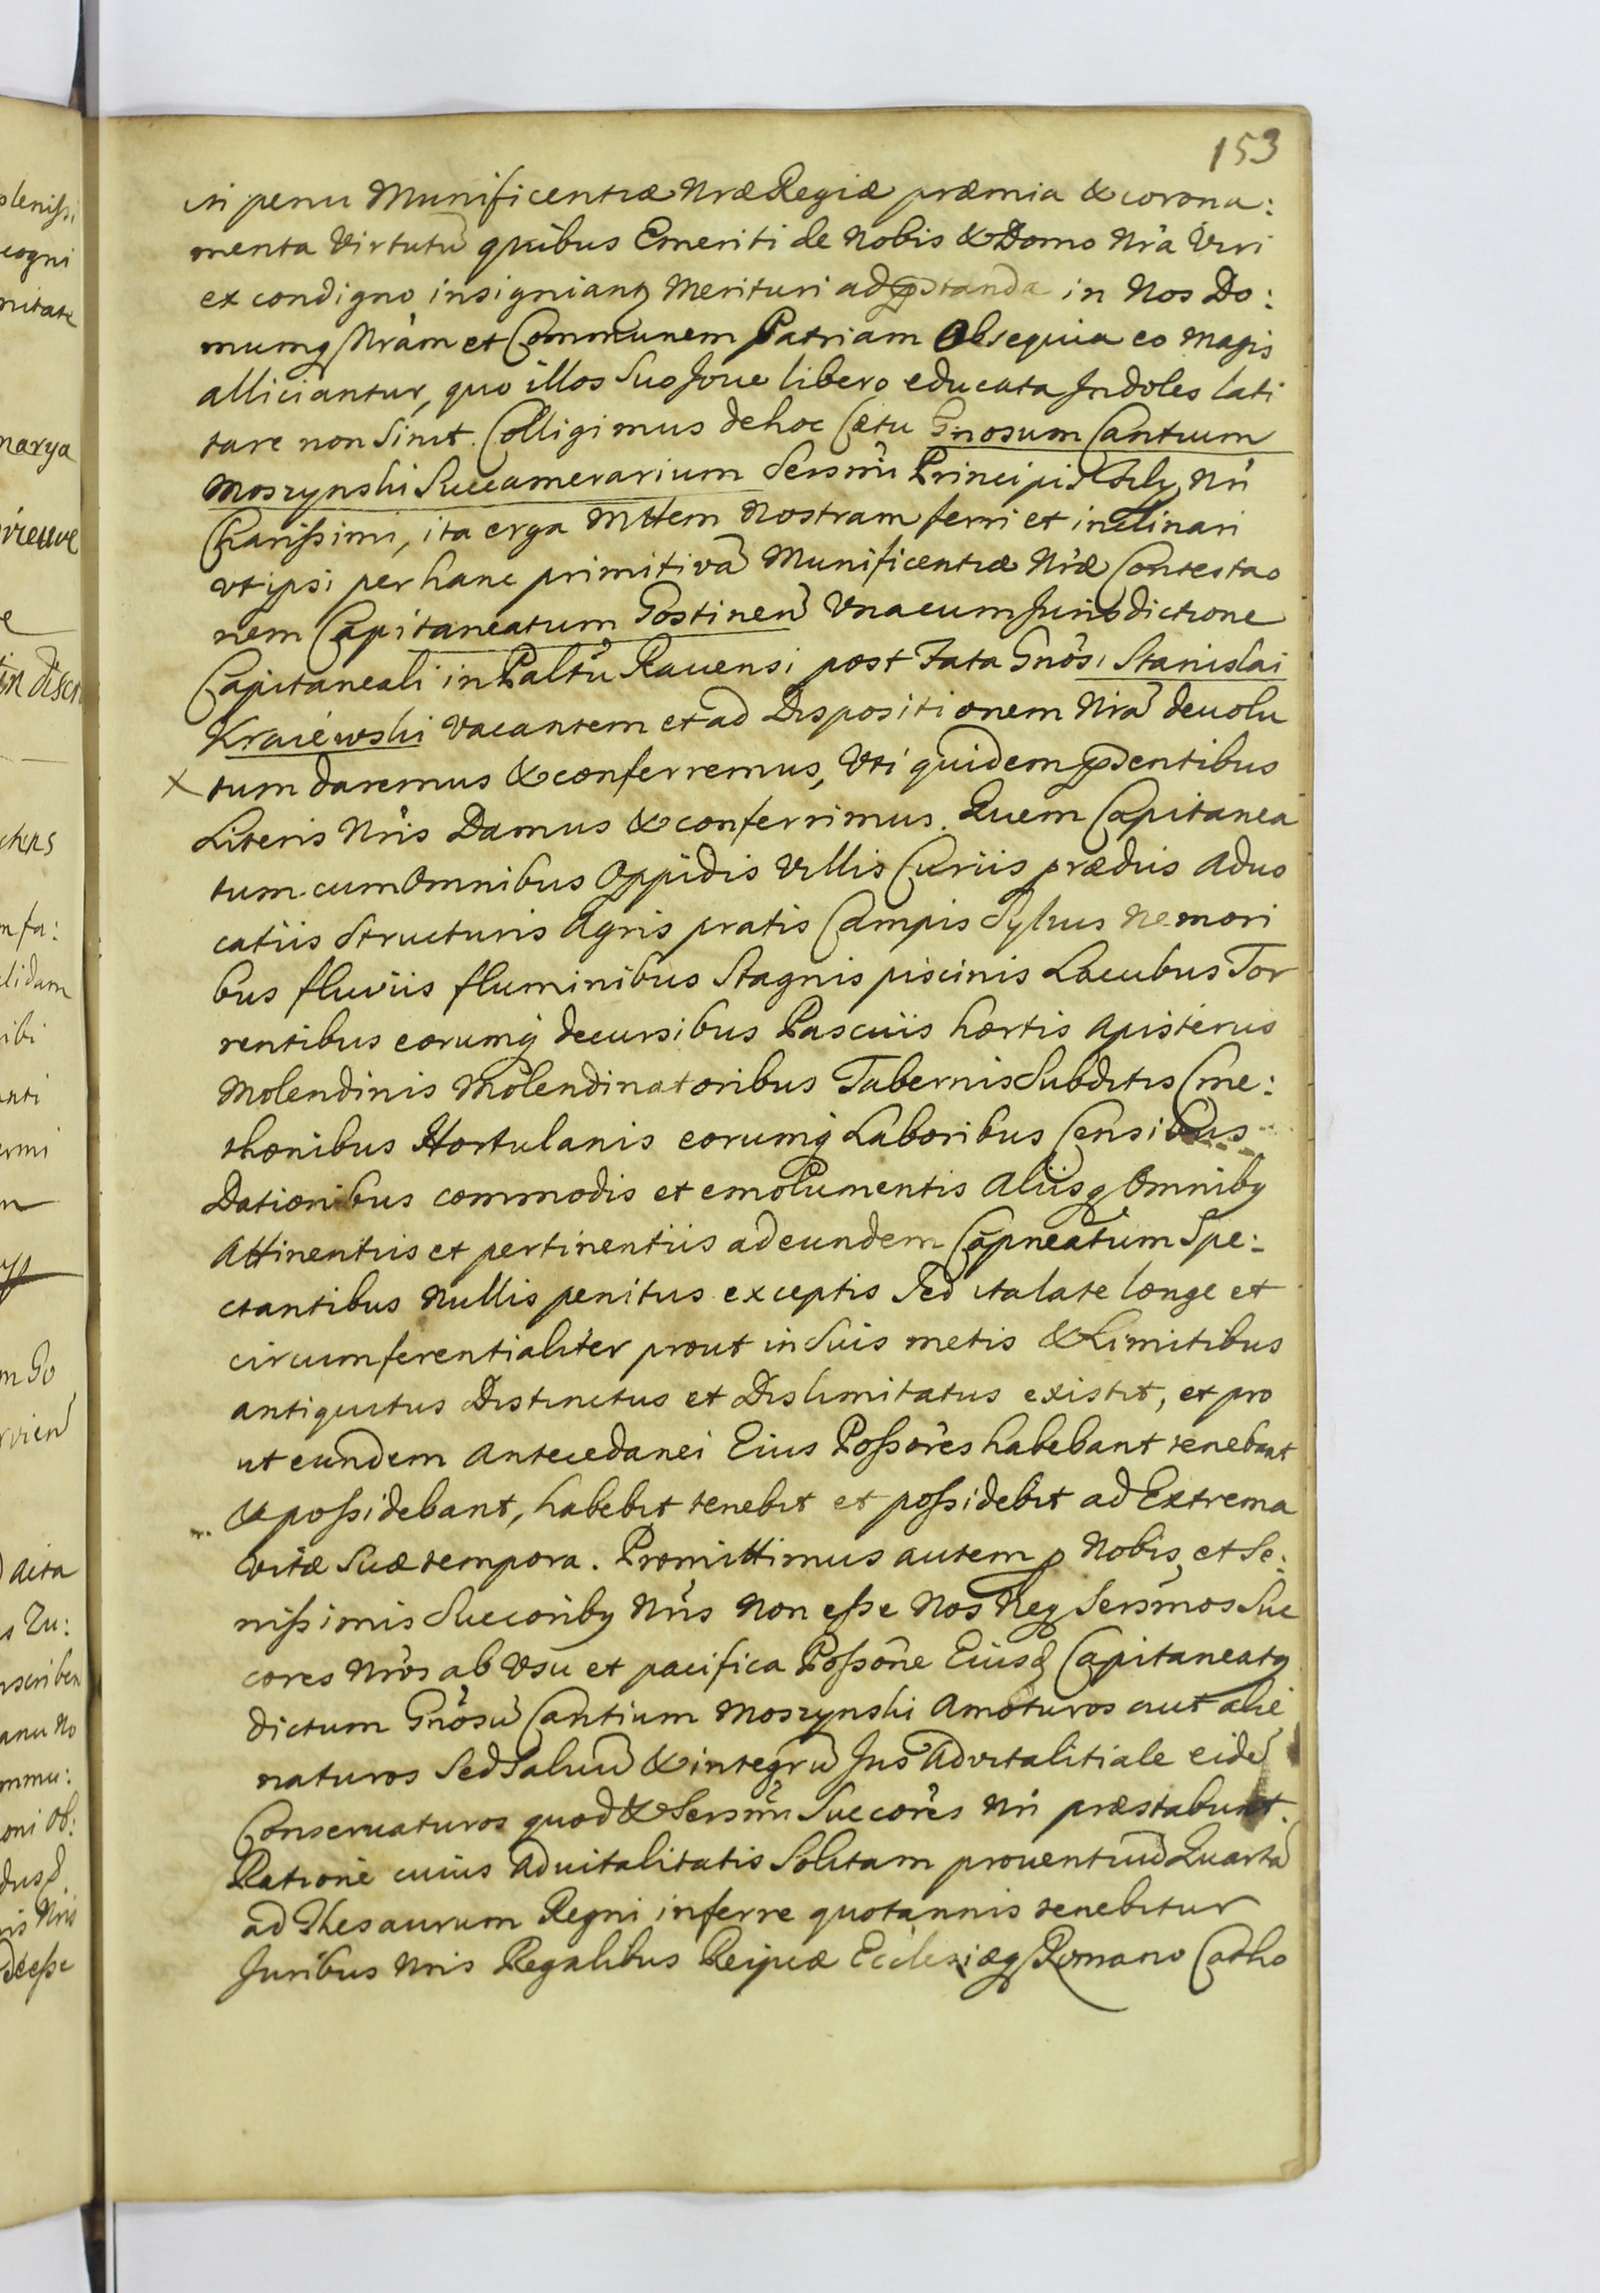 153
in penu Munificentiæ Nræ Regiæ præmia & corona:
menta Virtutũ quibus Emeriti de Nobis & Domo Nr̃a Viri
ex condigno insigniantꝫ Merituri ad p̃standa in Nos Do:
mumqꝫ Nrãm et Communem Patriam Obsequia eo magis
alliciantur, quo illos Suo Joue libero educata Jndoles lati
tare non Sinit. Colligimus de hoc Cætu Gnosum Cantium
Moszynski Succamerarium Sersm̃i Principis Filÿ Nr̃i
Charissimi, ita erga Mttem Nostram ferri et inclinari
vt ipsi per hanc primitivã Munificentiæ Nr̃æ Contestao
nem Capitaneatum Gostinen̄ Vnacum Jurisdictione
Capitaneali in Paltũ Rauensi post Fata Gnõsi Stanislai
Kraiewski vacantem et ad Dispositionem Nrã deuolu
tum daremus & conferremus, Vti quidem p̃sentibus
Literis Nr̃is Damus & conferrimus. Quem Capitanea
tum cum Omnibus Oppidis Villis Curiis prædiis Aduo
catiis Structuris Agris pratis Campis Syluis Nemori
bus fluviis fluminibus Stagnis piscinis Lacubus Tor
rentibus eorumq̃ decursibus Pascuis hortis Apisteriis
Molendinis Molendinatoribus Tabernis Subditis Cme:
thonibus Hortulanis eorumq̃ Laboribus Censibus
Dationibus commodis et emolumentis Aliisqꝫ Omnibꝫ
Attinentiis et pertinentiis ad eundem Capneatum Spe:
ctantibus Nullis penitus exceptis Sed ita late longe et
circumferentialiter prout in Suis metis & Limitibus
antiquitus Distinctus et Dislimitatus existit, et pro
ut eundem Antecedanei Eius Possores habebant tenebant
& possidebant, habebit tenebit et possidebit ad Extrema
vitæ Suæ tempora. Promittimus autem p Nobis et Se:
nissimis Succoribꝫ Nr̃is Non esse Nos Neqꝫ Sersmos Suc
cores Nr̃os ab Vsu et pacifica Possõne Eiusd Capitaneatꝫ
dictum Gnõsũ Cantium Moszynski Amoturos aut alie
naturos Sed Saluũ & integrũ Jus Advitalitiale eidẽ
Conseruaturos quod & Sersm̃i Succores Nr̃i præstabunt.
Ratione cuius Aduitalitatis Solitam prouentuũ Quartã
ad Thesaurum Regni inferre quotannis tenebitur
Juribus Nr̃is Regalibus Reipcæ Ecclesiæqꝫ Romano Catho